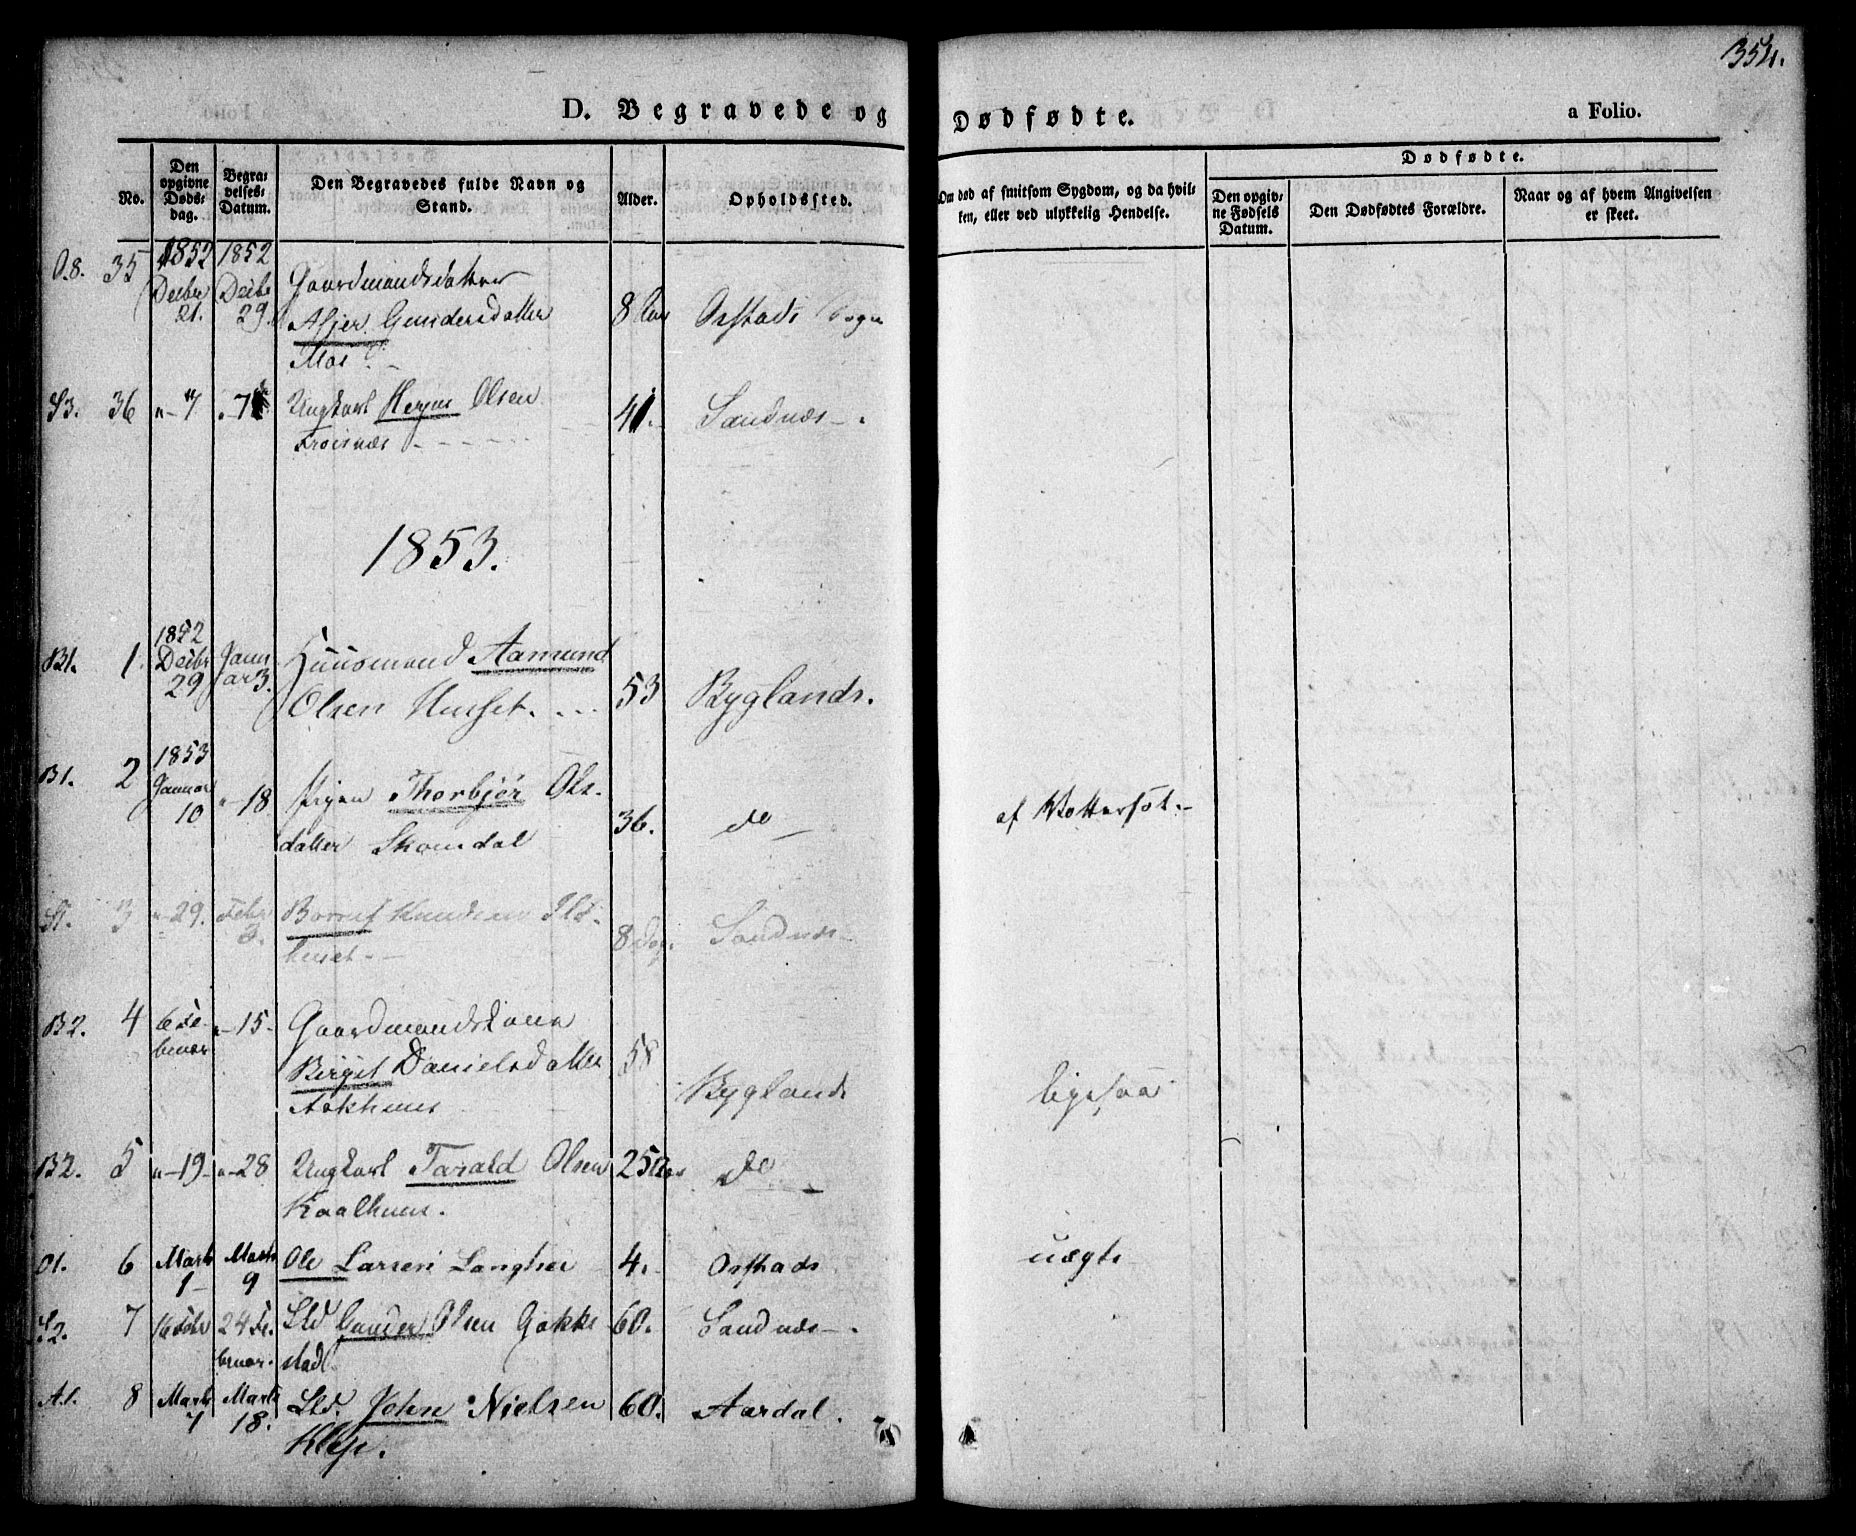 354.
D. Begravede og Dødfødte.
a Folio.
No.
Den opgivne Døds-dag.
Begra-velses-Datum.
Den Begravedes fulde Navn og Stand.
Alder.
Opholdssted.
Om død af smitsom Sygdom, og da hvil-ken, eller ved ulykkelig Hendelse.
Dødfødte.
Den opgiv-ne Fødsels Datum.
Den Dødfødtes Forældre.
Naar og af hvem Angivelsen er skeet.
O.8. 35 1852 1852
Decbr 21. Decbr 29. Gaardmandsdatter
Asjer Gundersdatter 8 Orstads Sogn
Moe
S3. 36 "-7 "-7 Ungkarl Olsen 41. Sandnæs-.
Froisnæs
1853.
B1. 1. 1852 Decbr 29 Januar 3. Huusmand Aamund
Olsen Husset. 53 Byglands.
B1. 2 1853
Januar 10 "-18 Pigen Thorbjør Ols-
datter Skomedal 36. do
af Vottersot.-
S1. 3 "-29. Febr 3. Knudsen
huset 8 Dag. Sandnæs
B2. 4 6 Fe-
bruar "-15- Gaardmandskone
Birgit Danielsdatter 58
Aakhuus Byglands
ligesaa
B2. 5 "-19- "-28 Ungkarl Tarald Olsen 25 do
Kaalhuus.
O1. 6 Marts 1 Marts 9 Ole Larsen 4. Orstads
uægte
S2. 7 16 Febr 24 Fe-
bruar. Ld. Gunder Olsen Gakke-
stad. 60. Sandnæs-.
A1. 8 Marts 7 Marts 18. Ld. John Nielsen 60. Aardal.
Klep.